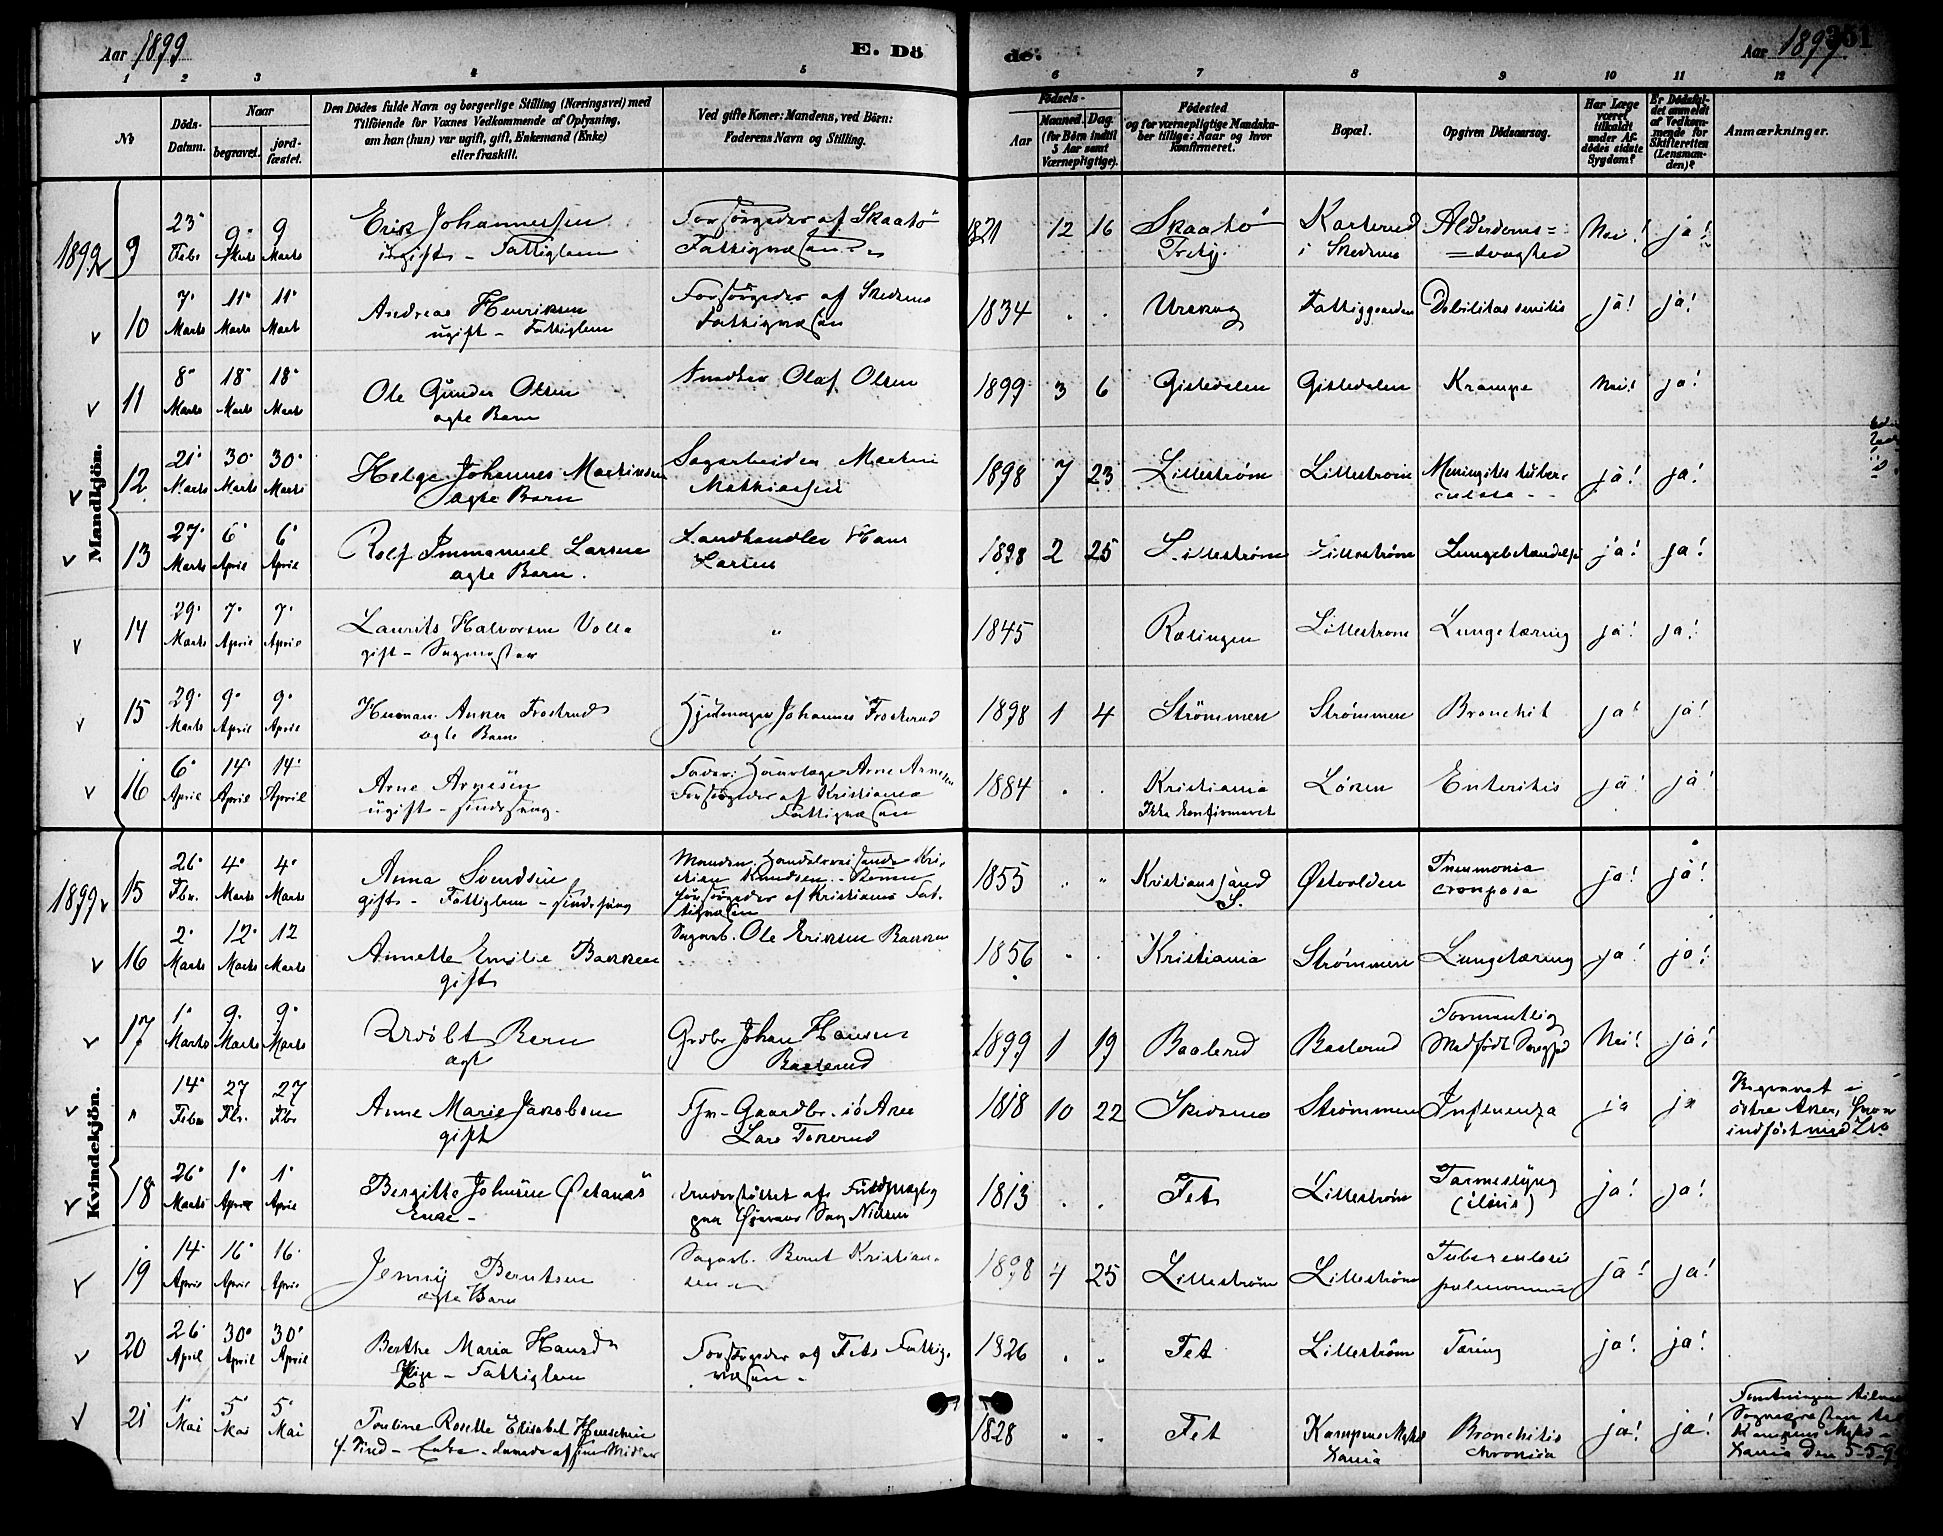 Aar 1899 E. Dö de. Aar 1899 351
1 2 3 4 5 6 7 8 9 10 11 12
No
Döds-Datum.
Naar
begravet.
jord-fæstet.
Den Dödes fulde Navn og borgerlige Stilling (Næringsvei) med
Tilföiende for Voxnes Vedkommende af Oplysning,
om han (hun) var ugift, gift, Enkemand (Enke)
eller fraskilt.
Ved gifte Koner: Mandens, ved Börn:
Faderens Navn og Stilling.
Födsels-
Aar
Maaned. Dag.
(for Börn indtil
5 Aar samt
Værnepligtige).
Födested
og for værnepligtige Mandska-
ber tillige: Naar og hvor
konfirmeret.
Bopæl.
Opgiven Dödsaarsag.
Har Læge
været
tilkaldt
under Af-
dödes sidste
Sygdom?
Er Dödsfal-
det anmeldt
af Vedkom-
mende for
Skifteretten
(Lensman-
den)?
Anmærkninger.
Mandkjön.
1899 9 23 Febr 9 Marts 9 Marts Erik Johannessen Forsørgedes af Skaatø 1821 12 16 Skaatø Karterud Alderdoms= Nei! ja!
ugift - Fattiglem Fattigvæsen i Skedsmo =svaghed
10 7 Marts 11 Marts 11 Mart Andreas Henriksen Forsørgedes af Skedsmo 1834 Urskog Fattiggaarden Debilitas senilis ja! ja!
ugift - Fattiglem Fattigvæsen
11 8 Marts 18 Marts 18 Marts Ole Gunder Olsen Snedker Olaf Olsen 1899 3 6 Gistedalen Gistedalen Krampe Nei! ja!
ægte Barn
12 21 Marts 30 Marts 30 Marts Helge Johannes Martinsen Sagarbeider Martin 1898 7 23 Lillestrøm Lillestrøm Meningites tuber- ja! ja!
ægte Barn Mathiassen culosa
13 27 Marts 6 April 6 April Rolf Immanuel Larsen Landhandler Hans 1898 2 25 Lillestrøm Lillestrøm Lungebetændelse ja! ja!
ægte Barn. Larsen
14 29 Marts 7 April 7 April Laurits Halvorsen Volla " 1845 Rælingen Lillestrøm Lungetæring ja! ja!
gift - Sagmester
15 29 Marts 9 April 9 April Herman Anker Frosterud Hjulmager Johannes Frosterud 1898 1 4 Strömmen Strømmen Bronchit ja! ja!
ægte Barn
16 6 April 14 April 14 April Arne Arnesen Fader: Arne Arnesen 1884 Kristiania Lören Enteritis ja! ja!
ugift - sindssyg. Forsørgedes af Kristiania Ikke konfirmeret
Fattigvæsen
Kvindekjön.
1899 15 26 Fbr. 4 Marts 4 Marts Anna Svendsen Manden: Handelsreisende Kri- 1855 " " Kristianssand Østvolden Pneumonia ja! ja!
gift - Fattiglem - sindssyg stian Knudsen. S. crouposa
forsørgedes af Kristiania Fat-
tigvæsen
16 2 Marts 12 Marts 12 Marts Annette Emilie Bakken Sagarb. Ole Eriksen Bakken 1856 Kristiania Strømmen Lungetæring ja! ja!
gift
17 1 Marts 9 Marts 9 Marts Udöbt Barn Grdbr Johan Hansen 1899 1 19 Baalerud Baalerud Formentlig Nei! ja!
ægt Baalerud Medfødt Svaghed
" 14 Febr 27 Fbr. 27 Fbr Anne Marie Jakobsen Fhv- Gaardbr. i ö Aker 1818 10 22 Skedsmo Strømmen Influenza ja ja Begravet i
gift Lars Tokerud østre Aker,
indført med No
18 26 Marts 1 April 1 April Bergitte Johnsen Østanaa Understøttet af 1813 Fet Lillestrøm Tarmeslyng ja! ja!
Enke - paa Sag (ileus)
19 14 April 16 April 16 April Jenny Berntsen Sagarb. Bernt Kristian- 1898 4 25 Lillestrøm Lillestrøm Tuberculosis ja! ja!
ægte Barn sen pulmonum
20 26 April 30 April 30 April Berthe Maria Hansd Forsørgedes af Fets Fattig- 1826 Fet Lillestrøm Tæring ja! ja!
Pige - Fattiglem væsen -
21 1 Mai 5 Mai 5 Mai Pauline Rosette Elisabet 1828 " " Fet Kampens Bronchitis ja! ja!
Enke - levede af sine Midler Xania chronica
Sognepræsten
Kampens
Xania den 5-5-99